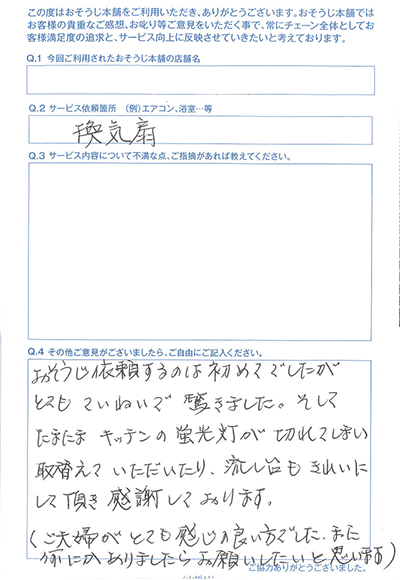 この度はおそうじ本舗をご利用いただき、ありがとうございます。おそうじ本舗では
お客様の貴重なご感想、お叱り等ご意見をいただく事で、常にチェーン全体としてお
客様満足度の追求と、サービス向上に反映させていきたいと考えております。
Q.1 今回ご利用されたおそうじ本舗の店舗名
Q.2 サービス依頼箇所 (例)エアコン、浴室…等
換気扇
Q.3 サービス内容について不満な点、ご指摘があれば教えてください。
Q.4 その他ご意見がございましたら、ご自由にご記入ください。
おそうじ依頼するのは初めてでしたが
とてもていねいで驚きました。そして
たまたまキッチンの蛍光灯が切れてしまい
取替えていただいたり、流し台もきれいに
して頂き感謝しております。
(ご夫婦がとても感じの良い方でした。また
何にかありましたらお願いしたいと思います)
ご協力ありがとうございました。